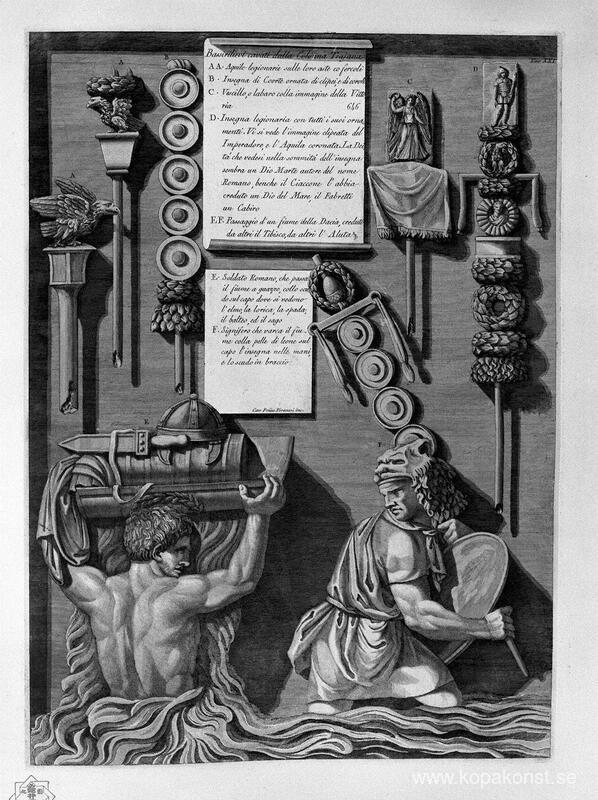 Bassirilievi cavati dalla Colonna Trajana
A A · Aquile legionarie sulle loro aste co' fercoli
B · Insegna di Coorte ornata di clipei, e di corone
C · Vessillo, o labaro colla immagine della Vitto
ria 646
D · Insegna legionaria con tutti i suoi orna
menti. Vi si vede l'immagine clipeata del
Imperadore, e l'Aquila coronata. La Dei
tà che vedesi nella sommità dell'insegna
sembra un Dio Marte autore del nome
Romano, benche il Ciaccone l'abbia
creduto un Dio del Mare, il Fabretti
un Cabiro
E.F. Passaggio d'un fiume della Dacia creduto
da altri il Tibisco, da altri l'Aluta
E · Soldato Romano, che passa
il fiume a guazzo, collo scu
do sul capo dove si vedono
l'elmo, la lorica, la spada,
il balteo, ed il sago
F · Signifero che varca il fiu
me colla pelle di leone sul
capo l'insegna nelle mani
e lo scudo in braccio
Cav. Piranesi inc.
A
B
C
D
A
E
F
www.kopakonst.se